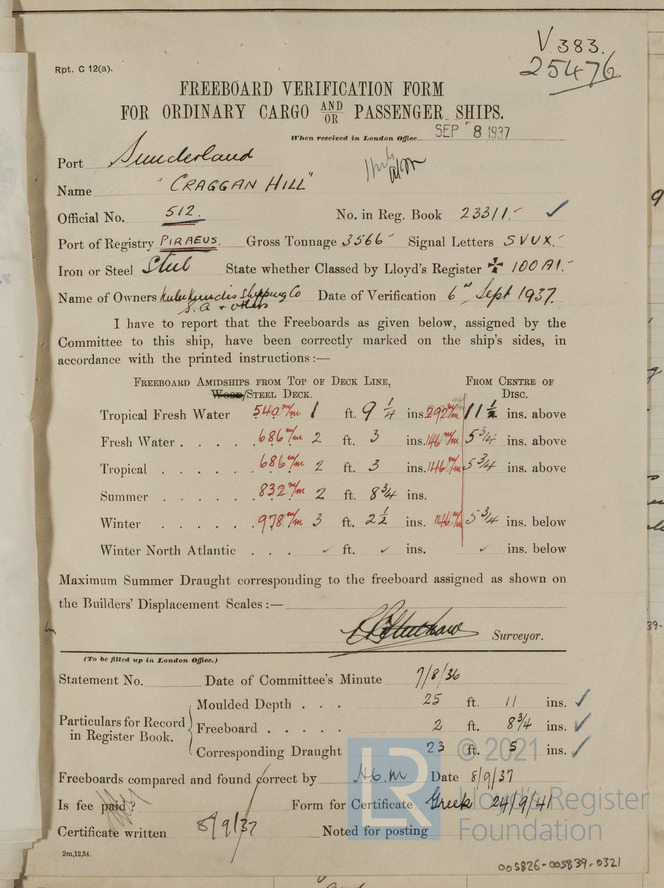 V.383.
25476
Rpt. C 12(a).
FREEBOARD VERIFICATION FORM
FOR ORDINARY CARGO AND/OR PASSENGER SHIPS.
When received in London Office SEP 8 1937
Port Sunderland
Name "CRAGGAN HILL"
Official No. 512. No. in Reg. Book 23311.- ✓
Port of Registry PIRAEUS. Gross Tonnage 3566- Signal Letters SVUX.-
Iron or Steel Steel State whether Classed by Lloyd's Register ✠ 100A1.-
Name of Owners Kulukundis Shipping Co Date of Verification 6th Sept 1937.
S.A + others
I have to report that the Freeboards as given below, assigned by the
Committee to this ship, have been correctly marked on the ship's sides, in
accordance with the printed instructions:—
FREEBOARD AMIDSHIPS FROM TOP OF DECK LINE, FROM CENTRE OF
WOOD/STEEL DECK. DISC.
Tropical Fresh Water 540 m/m 1 ft. 9 1/4 ins. 292 m/m 11 1/2 ins. above
Fresh Water . . . . 686 m/m 2 ft. 3 ins. 146 m/m 5 3/4 ins. above
Tropical . . . . . 686 m/m 2 ft. 3 ins. 146 m/m 5 3/4 ins. above
Summer . . . . . . 832 m/m 2 ft. 8 3/4 ins.
Winter . . . . . 978 m/m 3 ft. 2 1/2 ins. 146 m/m 5 3/4 ins. below
Winter North Atlantic . . . ✓ ft. ✓ ins. ✓ ins. below
Maximum Summer Draught corresponding to the freeboard assigned as shown on
the Builders' Displacement Scales:—
Surveyor.
(To be filled up in London Office.)
Statement No. Date of Committee's Minute 7/8/36
Particulars for Record in Register Book.
Moulded Depth . . . 25 ft. 11 ins. ✓
Freeboard . . . . . 2 ft. 8 3/4 ins. ✓
Corresponding Draught 23 ft. 5 ins. ✓
Freeboards compared and found correct by H.G.M Date 8/9/37
Is fee paid? Form for Certificate Greek 24/9/41
Certificate written 8/9/37 Noted for posting
2m,12,34.
LR © 2021
Lloyd's Register
Foundation
005826-005839-0321